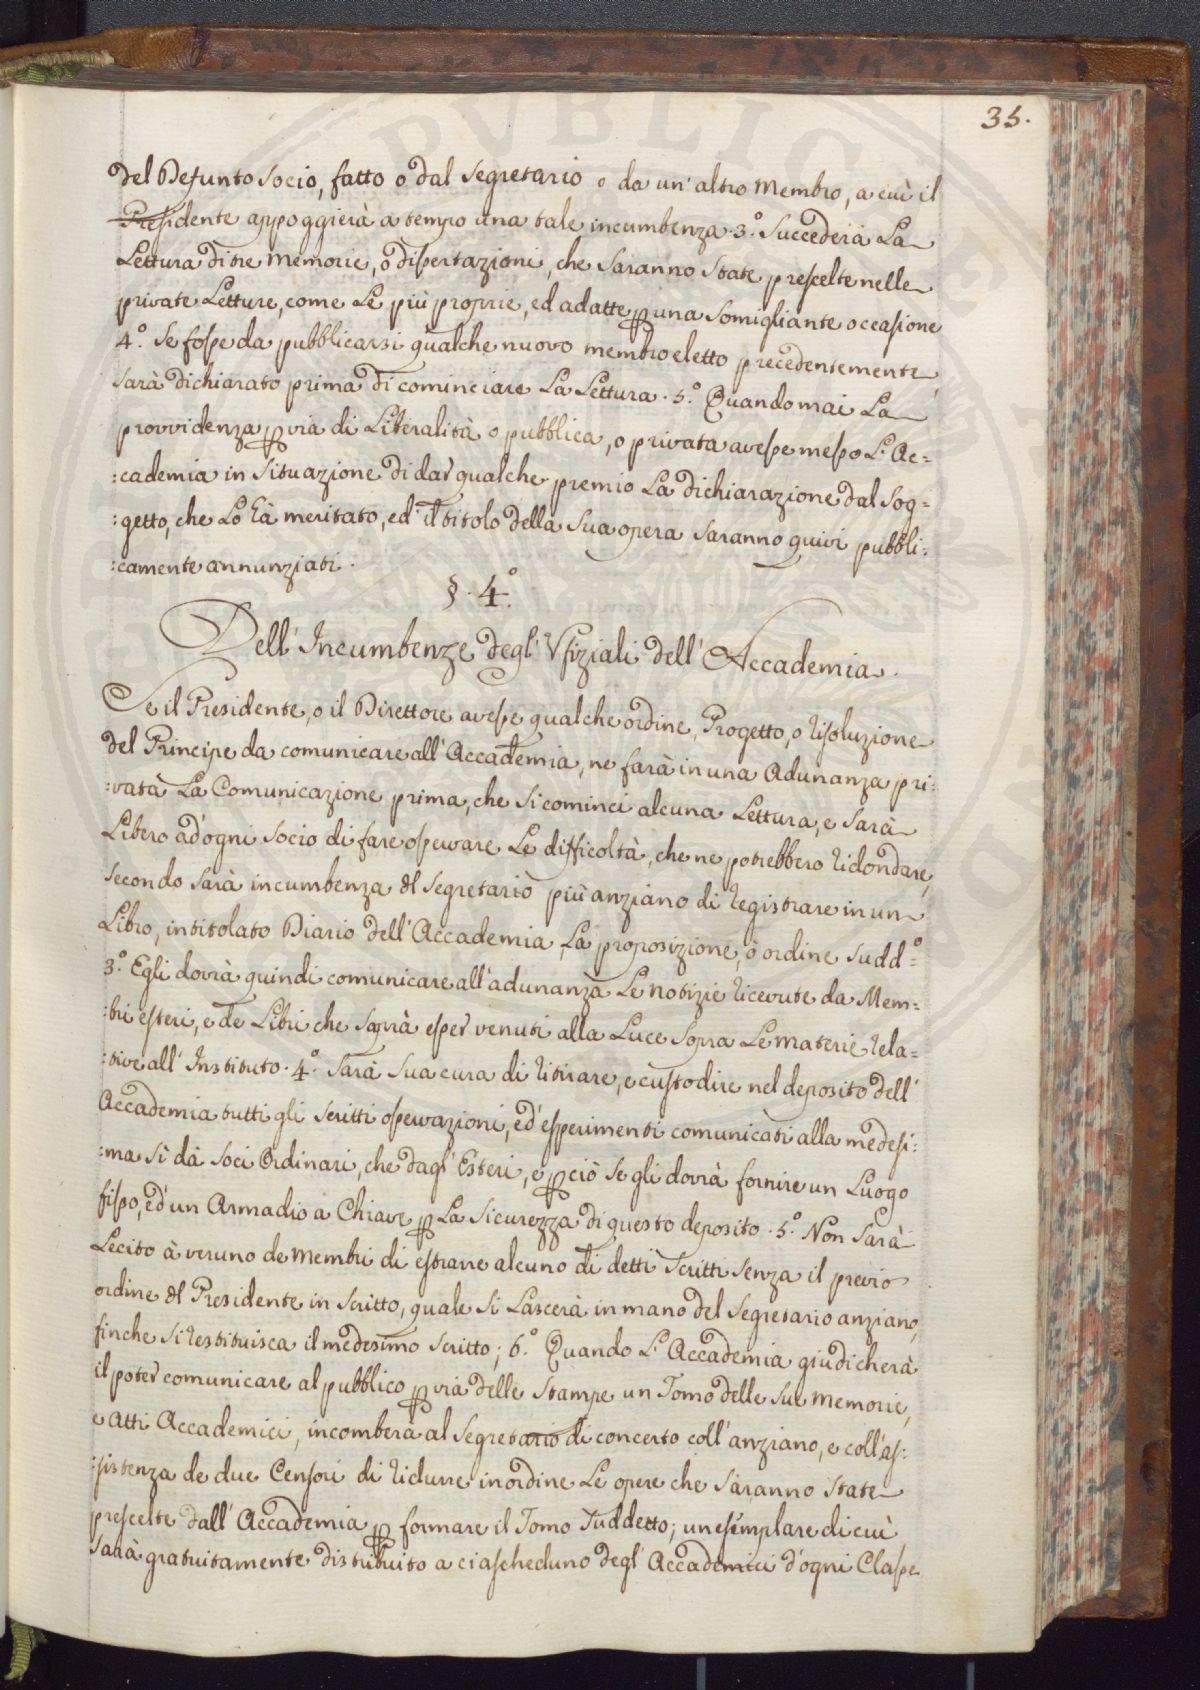 35.
del Defunto Socio, fatto o dal Segretario o da un' altro Membro, a cuì il
Presidente appoggierà a tempo una tale incumbenza. 3.° Succederà La
Lettura di tre Memorie, o dissertazioni, che Saranno State prescelte nelle
private Letture, come Le più proprie, ed adatte p una Somigliante occasione
4.° Se fosse da pubblicarsi qualche nuovo membro eletto precedentemente
Sarà dichiarato prima di cominciare La Lettura. 5.° Quando mai La
provvidenza p via di Liberalità o pubblica, o privata avesse messo L'Ac=
:cademia in Situazione di dar qualche premio La dichiarazione dal Sog=
:getto, che Lo hà meritato, ed il titolo della Sua opera Saranno quivi pubbli:
:camente annunziati.
§. 4.°
Dell' Incumbenze degl' Vfiziali dell' Accademia.
Se il Presidente, o il Direttore avesse qualche ordine, Progetto, o risoluzione
del Principe da comunicare all' Accademia, ne farà in una Adunanza pri:
:vata La Comunicazione prima, che Si cominci alcuna Lettura, e Sarà
Libero ad'ogni Socio di fare osservare Le difficoltà, che ne potrebbero ridondare,
Secondo Sarà incumbenza del Segretario più anziano di registrare in un
Libro, intitolato Diario dell' Accademia La proposizione, o ordine Sudd.°
3.° Egli dovrà quindi comunicare all' adunanza Le notizie ricevute da Mem=
:bri esteri, e de Libri che Saprà esser venuti alla Luce Sopra Le materie rela=
:tive all' Instituto. 4.° Sarà Sua cura di ritirare, e custodire nel deposito dell'
Accademia tutti gli Scritti osservazioni, ed' esperimenti comunicati alla medesi:
:ma Sì dà Soci Ordinari, che dagl' Esteri, e p ciò Se gli dovrà fornire un Luogo
fisso, ed' un Armadio a Chiave p La Sicurezza di questo deposito. 5.° Non Sarà
Lecito à veruno de Membri di estrarre alcuno di detti Scritti Senza il previo
ordine del Presidente in Scritto, quale Si Lascerà in mano del Segretario anziano,
finche Si restituisca il medesimo Scritto; 6.° Quando L'Accademia giudicherà
il poter comunicare al pubblico p via delle Stampe un Tomo delle Sue Memorie,
e Atti Accademici, incomberà al Segretario di concerto coll' anziano, e coll' as:
:sistenza de due Censori di ridurre in ordine Le opere che Saranno State
prescelte dall' Accademia p formare il Tomo Suddetto; un esemplare di cuì
Sarà gratuitamente distribuito a ciascheduno degl' Accademici d'ogni Classe